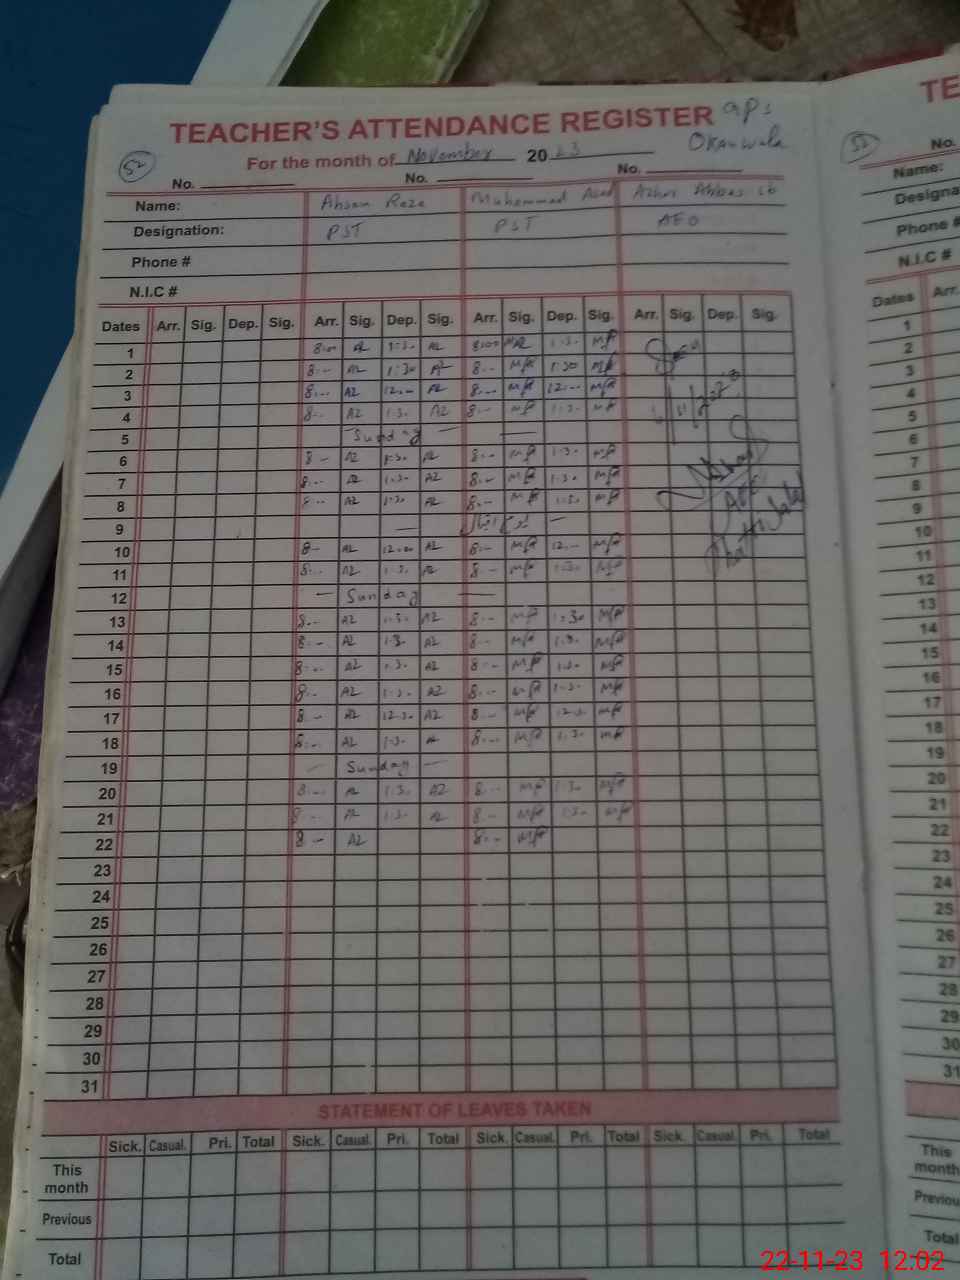 TEACHER'S ATTENDANCE REGISTER GPS
For the month of November 2023 Okanwala
52
No. No. No.
Name: Ahsan Raza Muhammad Azhar Abbas
Designation: PST PST AEO
Phone #
N.I.C #
Dates Arr. Sig. Dep. Sig. Arr. Sig. Dep. Sig. Arr. Sig. Dep. Sig. Arr. Sig. Dep. Sig.
1 8:00 AZ 1:30 AZ 8:00 MA 1:30 MA
2 8:-- AZ 1:30 AZ 8:-- MA 1:30 MA
3 8:-- AZ 12:-- AZ 8:-- MA 12:-- MA
4 8:-- AZ 1:30 AZ 8:-- MA 1:30 MA
5 — Sunday — —
6 8 -- AZ 1:30 AZ 8:-- MA 1:30 MA
7 8:-- AZ 1:30 AZ 8:-- MA 1:30 MA
8 8:-- AZ 1:30 AZ 8:-- MA 1:30 MA
9 — یوم اقبال —
10 8-- AZ 12:00 AZ 8:-- MA 12:-- MA
11 8:-- AZ 1:30 AZ 8:-- MA 1:30 MA
12 — Sunday —
13 8:-- AZ 1:30 AZ 8:-- MA 1:30 MA
14 8:-- AZ 1:30 AZ 8:-- MA 1:30 MA
15 8:-- AZ 1:30 AZ 8:-- MA 1:30 MA
16 8:-- AZ 1:30 AZ 8:-- MA 1:30 MA
17 8:-- AZ 12:30 AZ 8:-- MA 12:30 MA
18 8:-- AZ 1:30 8:-- MA 1:30 MA
19 — Sunday —
20 8:-- AZ 1:30 AZ 8:-- MA 1:30 MA
21 8:-- AZ 1:30 AZ 8:-- MA 1:30 MA
22 8:-- AZ 8:-- MA
23
24
25
26
27
28
29
30
31
STATEMENT OF LEAVES TAKEN
Sick. Casual. Pri. Total Sick. Casual. Pri. Total Sick. Casual. Pri. Total Sick. Casual. Pri. Total
This month
Previous
Total
TE
52
No.
Name:
Designa
Phone #
N.I.C #
Dates Arr.
1
2
3
4
5
6
7
8
9
10
11
12
13
14
15
16
17
18
19
20
21
22
23
24
25
26
27
28
29
30
31
This month
Previous
Total
22-11-23 12:02